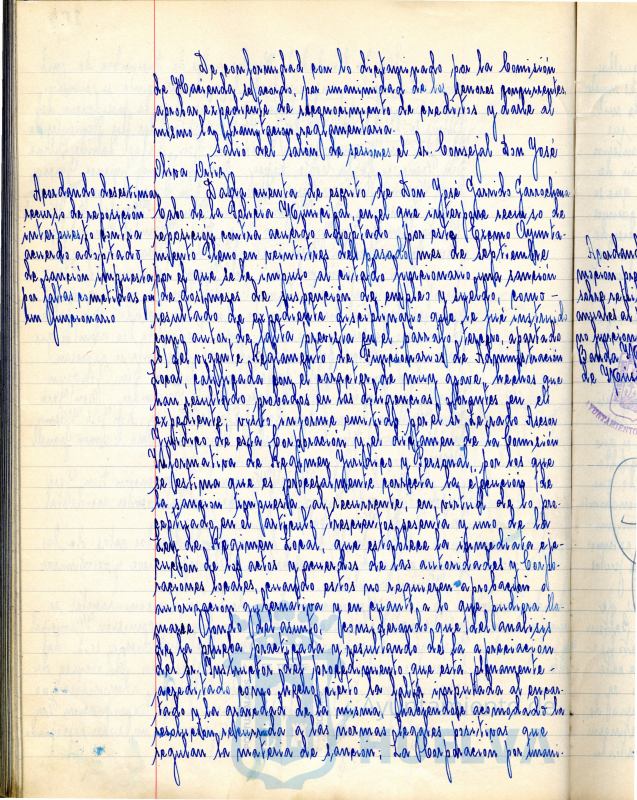 De conformidad con lo dictaminado por la Comisión
de Hacienda se acordó, por unanimidad de los Señores concurrentes,
aprobar expediente de reconocimiento de creditos y darle al
mismo la tramitacion reglamentaria.
Salió del salón de sesiones el Sr. Concejal Don José
Oliva Ortiz
Acordando desestimar
recurso de reposición
interpuesto contra
acuerdo adoptado
de sanción impuesta
por faltas cometidas por
un funcionario
Dada cuenta de escrito de Don José Garrido
Cabo de la Policía Municipal, en el que interpone recurso de
reposición contra acuerdo adoptado por este Excmo Ayunta-
miento Pleno en veintitres del pasado mes de septiembre
por el que se le impuso al citado funcionario una sanción
de dos meses de suspensión de empleo y sueldo, como
resultado de expediente disciplinario que le fué instruido
como autor de falta prevista en el parrafo tercero, apartado
del vigente Reglamento de Funcionarios de Administración
Local, calificada con el caracter de muy grave, hechos que
han resultado probados en las diligencias obrantes en el
expediente; visto informe emitido por el Sr. Letrado Asesor
Jurídico de esta Corporación y el dictamen de la Comisión
Informativa de Regimen Jurídico y Personal, por los que
se estima que es procesalmente correcta la ejecución de
la sanción impuesta al recurrente, en virtud de lo pre-
ceptuado en el articulo trescientos sesenta y uno de la
Ley de Regimen Local, que establece la inmediata eje-
cución de los actos y acuerdos de las autoridades y Corpo-
raciones locales, cuando estos no requieren aprobación o
autorización gubernativa y en cuanto a lo que pudiera lla-
marse fondo del asunto. Considerando que del analisis
de la prueba practicada y resultando de la apreciación
del Sr. Instructor del procedimiento que está plenamente
acreditado como hecho cierto la falta imputada al encar-
tado y la gravedad de la misma, habiendose acomodado la
resolución recurrida a las normas legales positivas que
regulan la materia de sanción; La Corporación por unani-
Acordand
de
AYUNTAMIENTO
Ayuntamiento de
HUELVA